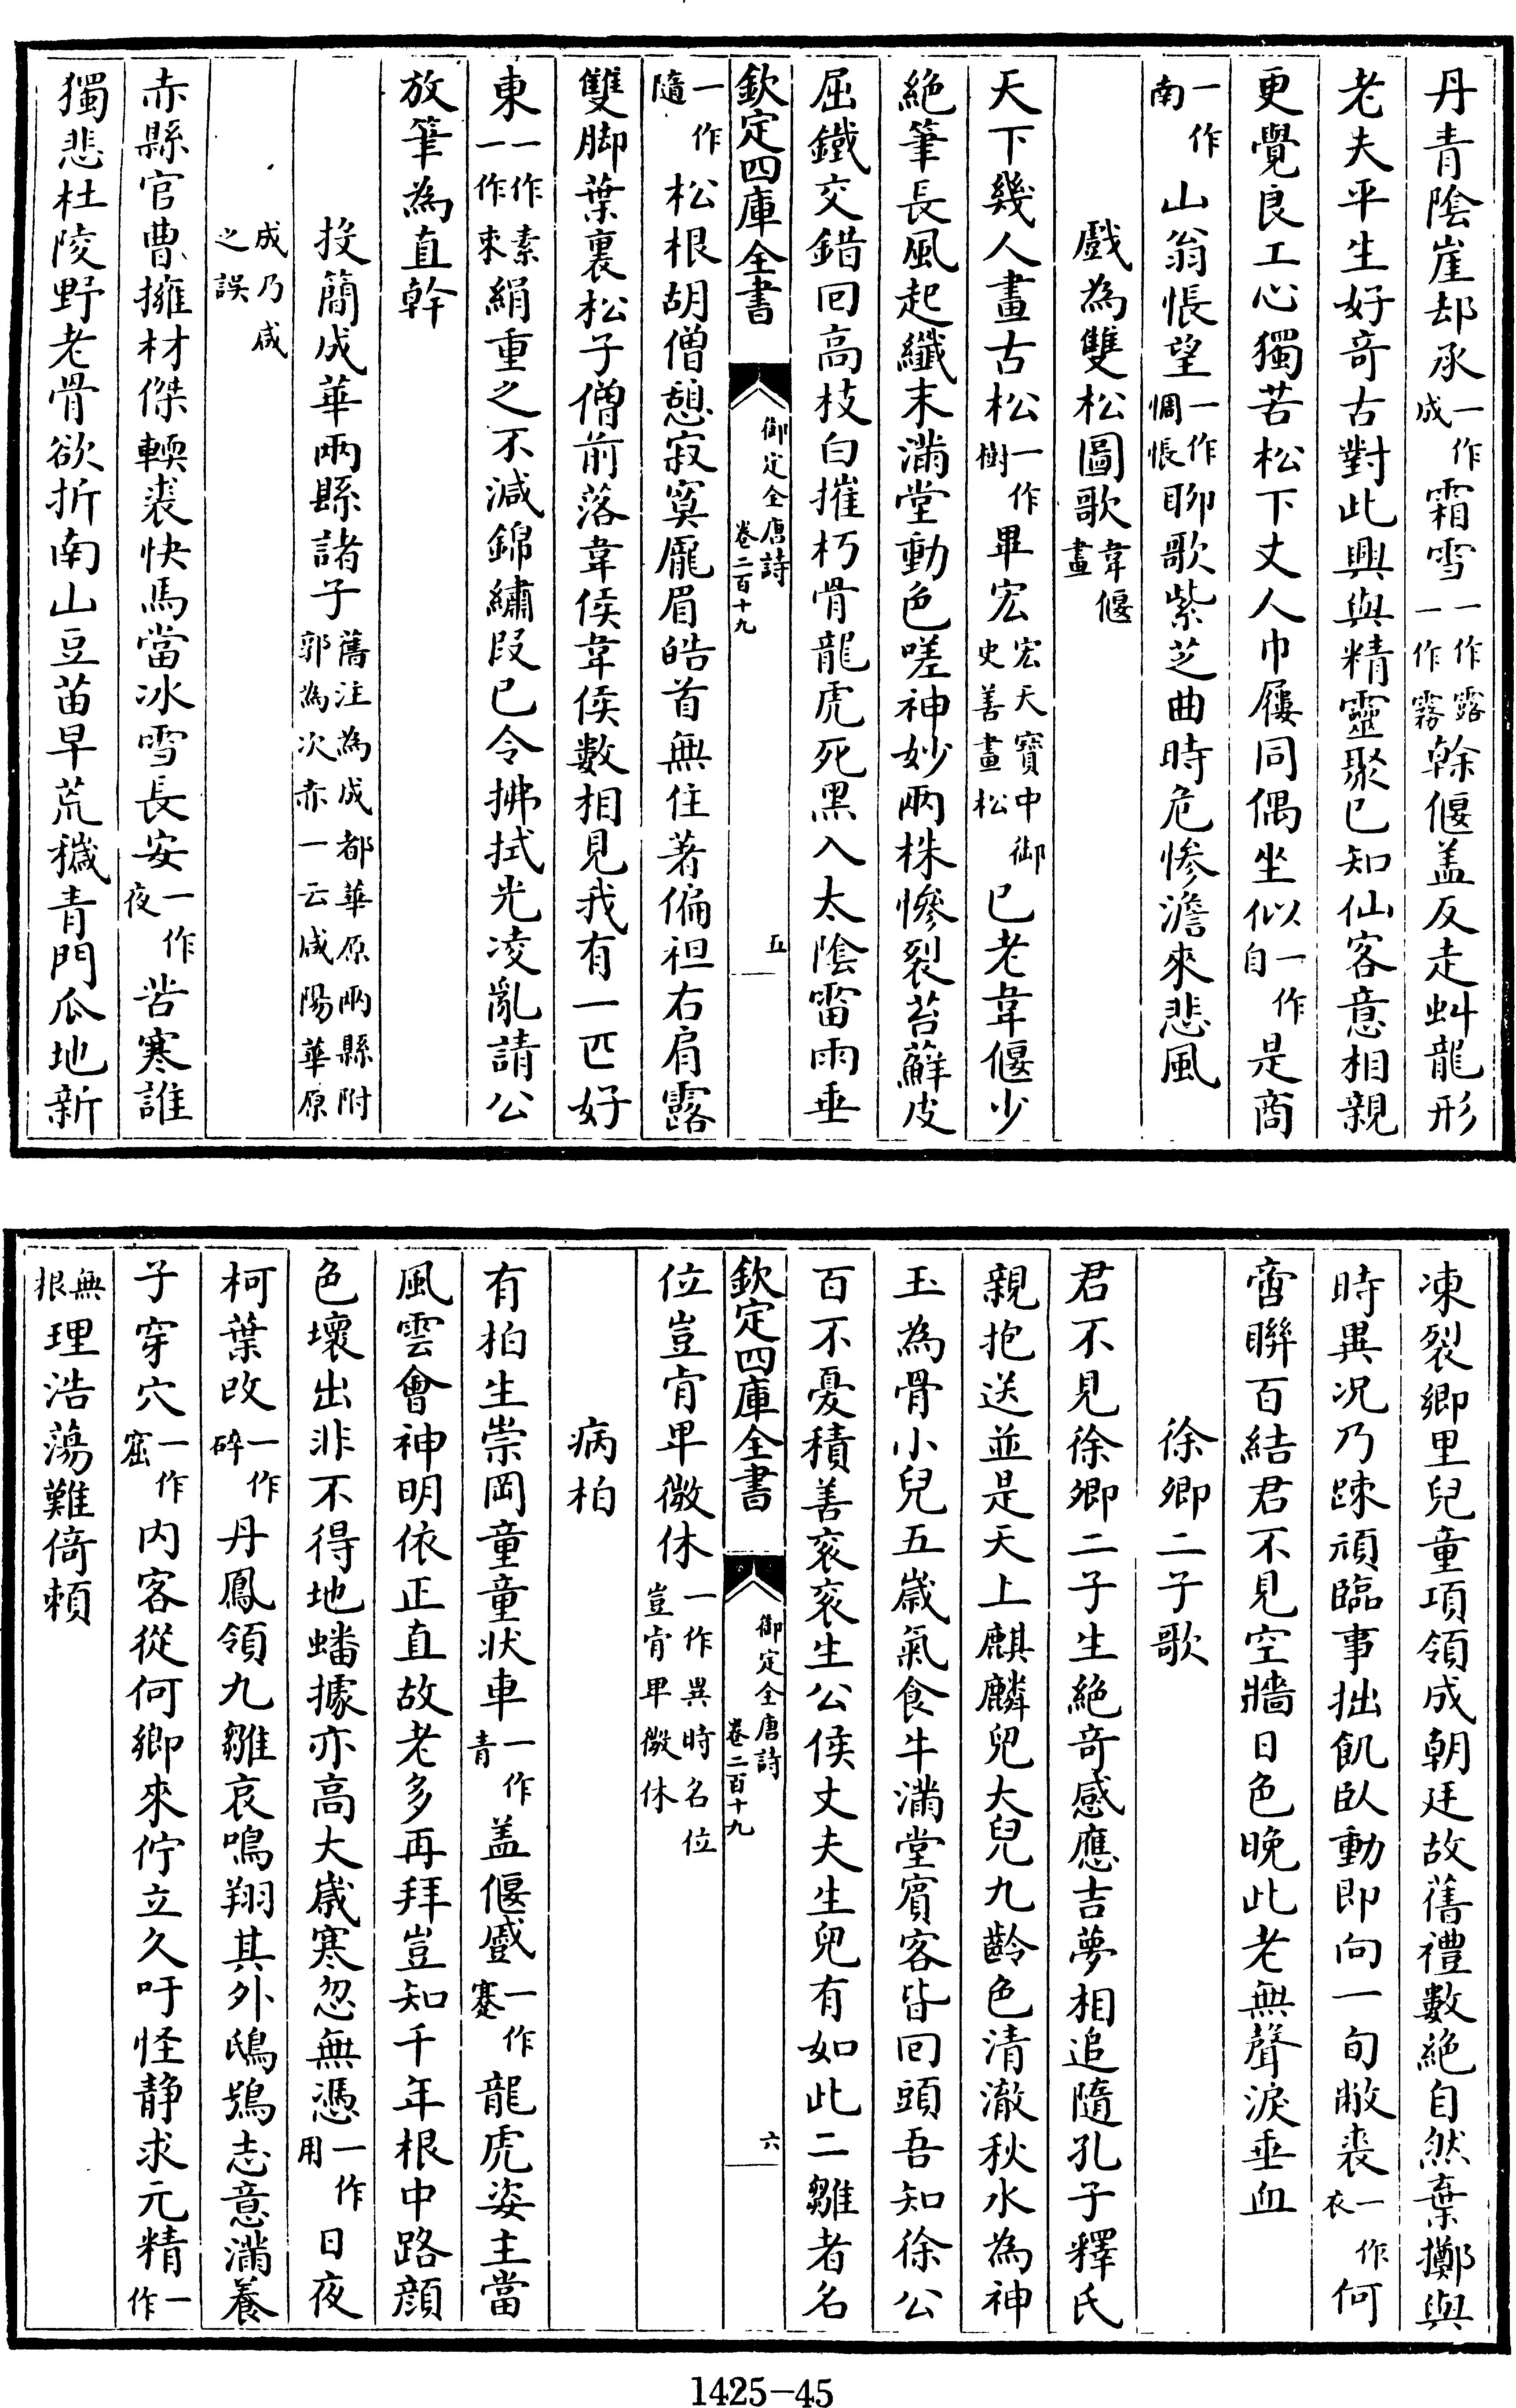 丹青陰崖却承一作成霜雪一作露一作霧幹偃盖反走虯龍形
老夫平生好奇古對此興與精靈聚已知仙客意相親
更覺良工心獨苦松下丈人巾屨同偶坐似一作自是商
一作南山翁悵望一作惆悵聊歌紫芝曲時危惨澹來悲風
戲為雙松圖歌韋偃畫
天下幾人畫古松一作樹畢宏宏天寶中御史善畫松已老韋偃少
絶筆長風起纖末滿堂動色嗟神妙兩株慘裂苔蘚皮
屈鐵交錯回高枝白摧朽骨龍虎死黑入太陰雷雨垂
欽定四庫全書 御定全唐詩 卷二百十九 五
一作隨松根胡僧憩寂寞龎眉皓首無住著偏袒右肩露
雙脚葉裏松子僧前落韋侯韋侯數相見我有一匹好
東一作素一作束絹重之不減錦繡段已令拂拭光凌亂請公
放筆為直幹
投簡成華兩縣諸子舊注為成都華原兩縣附郭為次赤一云咸陽華原
成乃咸之誤
赤縣官曹擁材傑輭裘快馬當冰雪長安一作夜苦寒誰
獨悲杜陵野老骨欲折南山豆苗早荒穢青門瓜地新
凍裂鄉里兒童項領成朝廷故舊禮數絶自然棄擲與
時異况乃踈頑臨事拙飢臥動即向一旬敝裘一作衣何
啻聯百結君不見空牆日色晚此老無聲淚垂血
徐卿二子歌
君不見徐卿二子生絶奇感應吉夢相追隨孔子釋氏
親抱送並是天上麒麟兒大兒九齡色清澈秋水為神
玉為骨小兒五歲氣食牛滿堂賓客皆回頭吾知徐公
百不憂積善衮衮生公侯丈夫生兒有如此二雛者名
欽定四庫全書 御定全唐詩 卷二百十九 六
位豈肯卑微休一作異時名位豈肯卑微休
病柏
有柏生崇岡童童狀車一作青盖偃蹙一作蹇龍虎姿主當
風雲會神明依正直故老多再拜豈知千年根中路顔
色壞出非不得地蟠據亦高大歲寒忽無憑一作用日夜
柯葉改一作碎丹鳳領九雛哀鳴翔其外鴟鴞志意滿養
子穿穴一作窟内客從何鄉來佇立久吁怪静求元精一作
無根理浩蕩難倚頼
1425-45